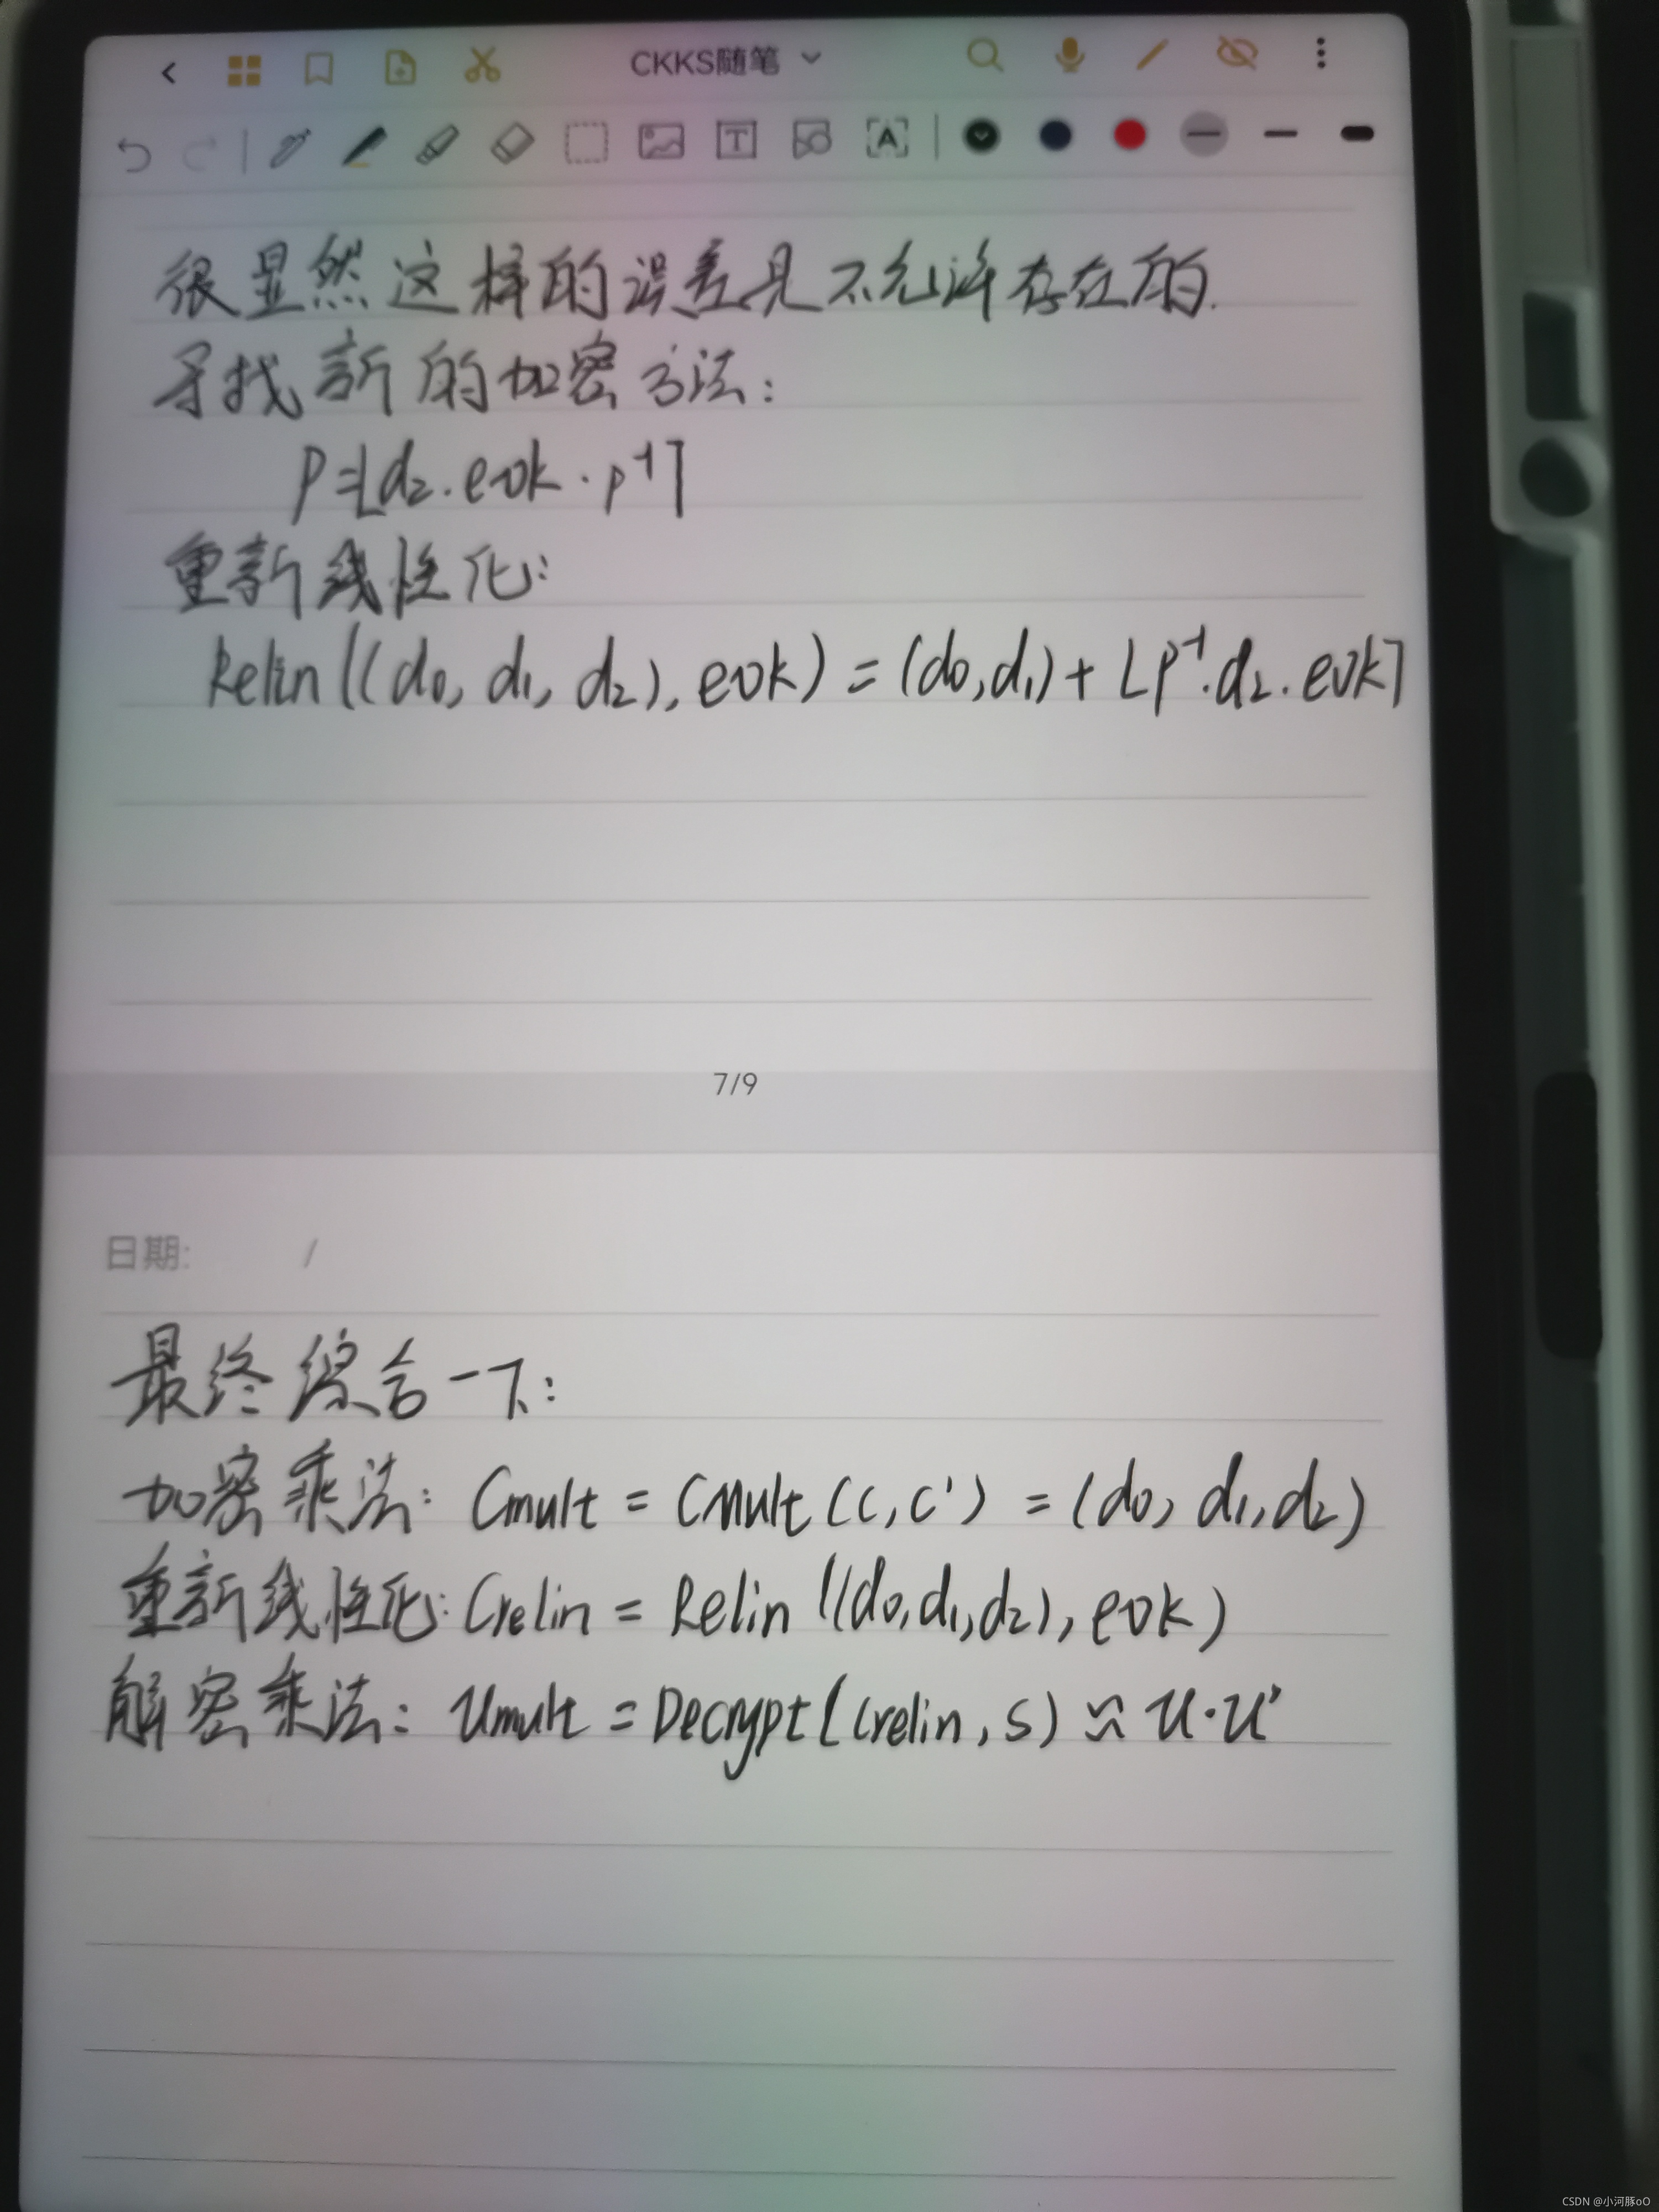 CKKS随笔
很显然这样的误差是不允许存在的.
寻找新的加密方法:
P=⌊d₂·evk·p⁻¹⌉
重新线性化:
Relin((d₀, d₁, d₂), evk) = (d₀,d₁)+⌊P⁻¹·d₂·evk⌉
7/9
日期: /
最终综合一下:
加密乘法: Cmult = CMult(c,c') = (d₀, d₁,d₂)
重新线性化: Crelin = Relin((d₀,d₁,d₂), evk)
解密乘法: Umult = Decrypt(Crelin, s) ≈ u·u'
CSDN @小河豚oO